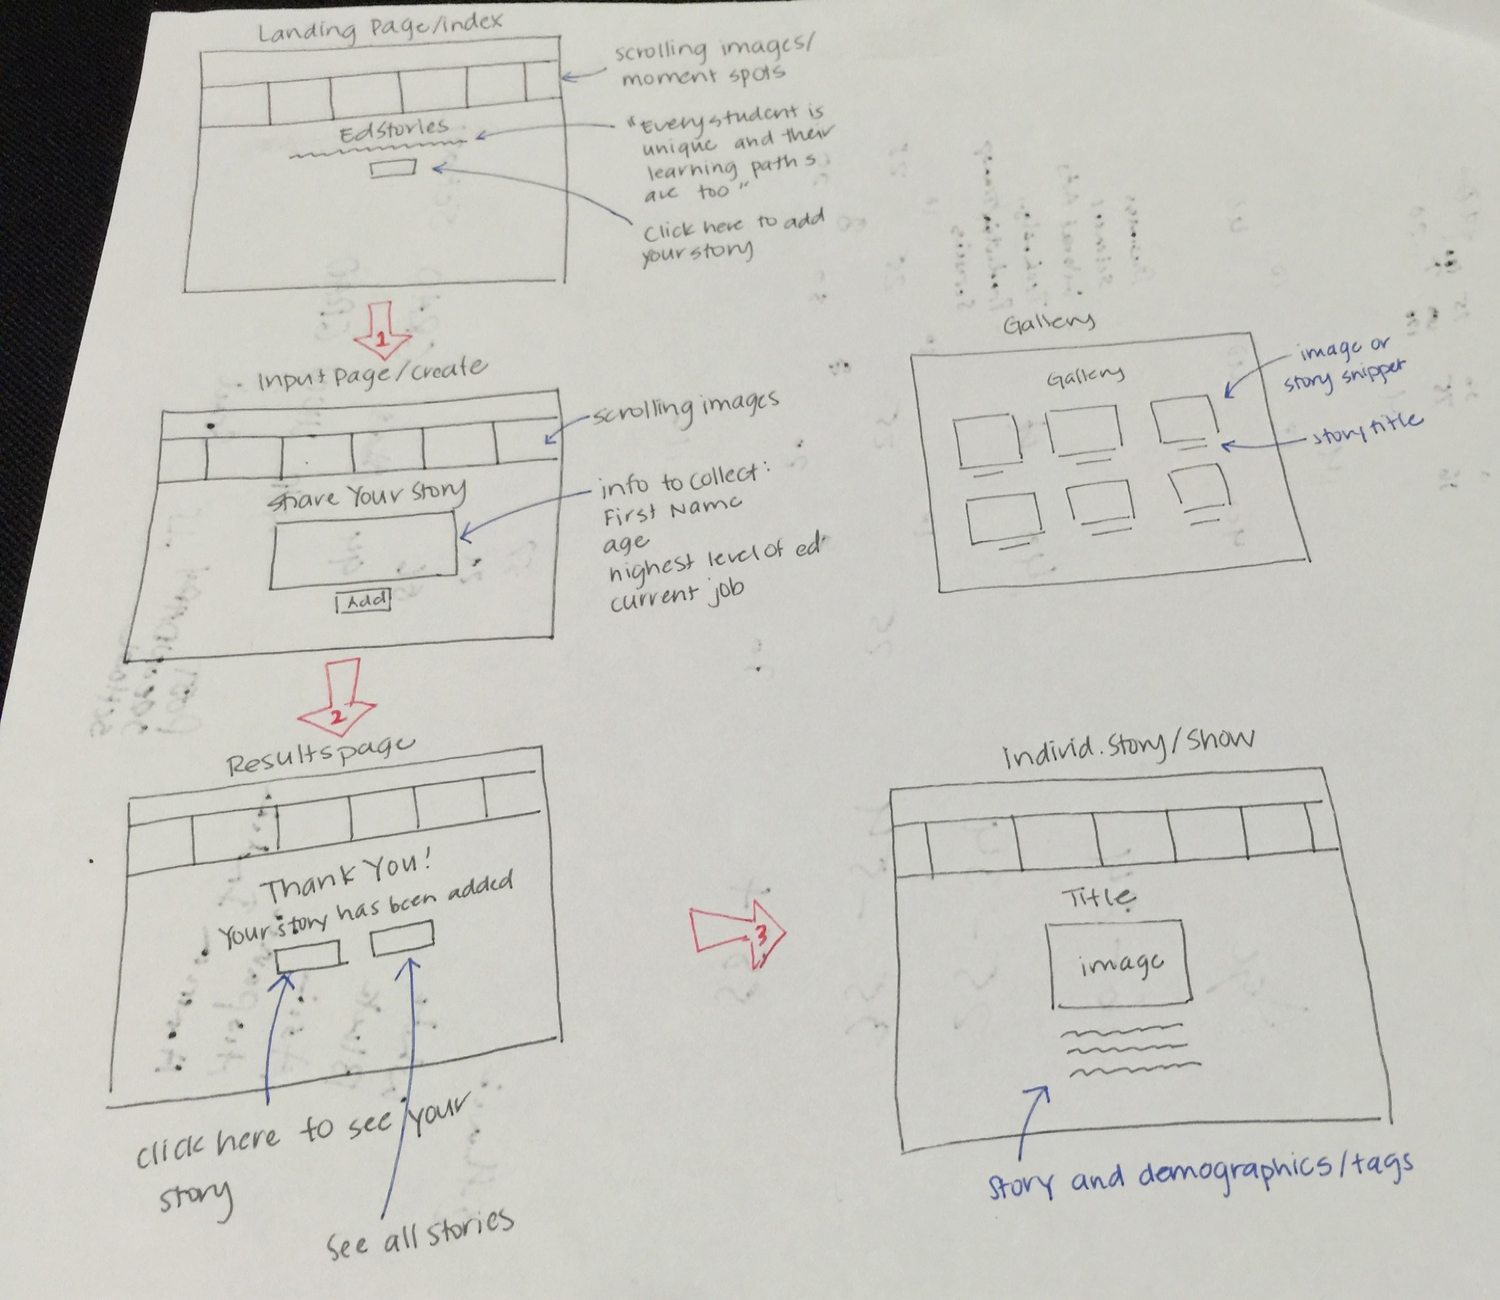 Landing Page/index
scrolling images/
moment spots
EdStories
"Every student is
unique and their
learning paths
are too"
Click here to add
your story
1
Input page/create
scrolling images
Share Your Story
info to collect:
First Name
age
highest level of ed
current job
Add
2
Results page
Thank You!
Your story has been added
click here to see your
story
See all stories
3
Gallery
Gallery
image or
story snippet
story title
individ. story/show
Title
image
story and demographics/tags